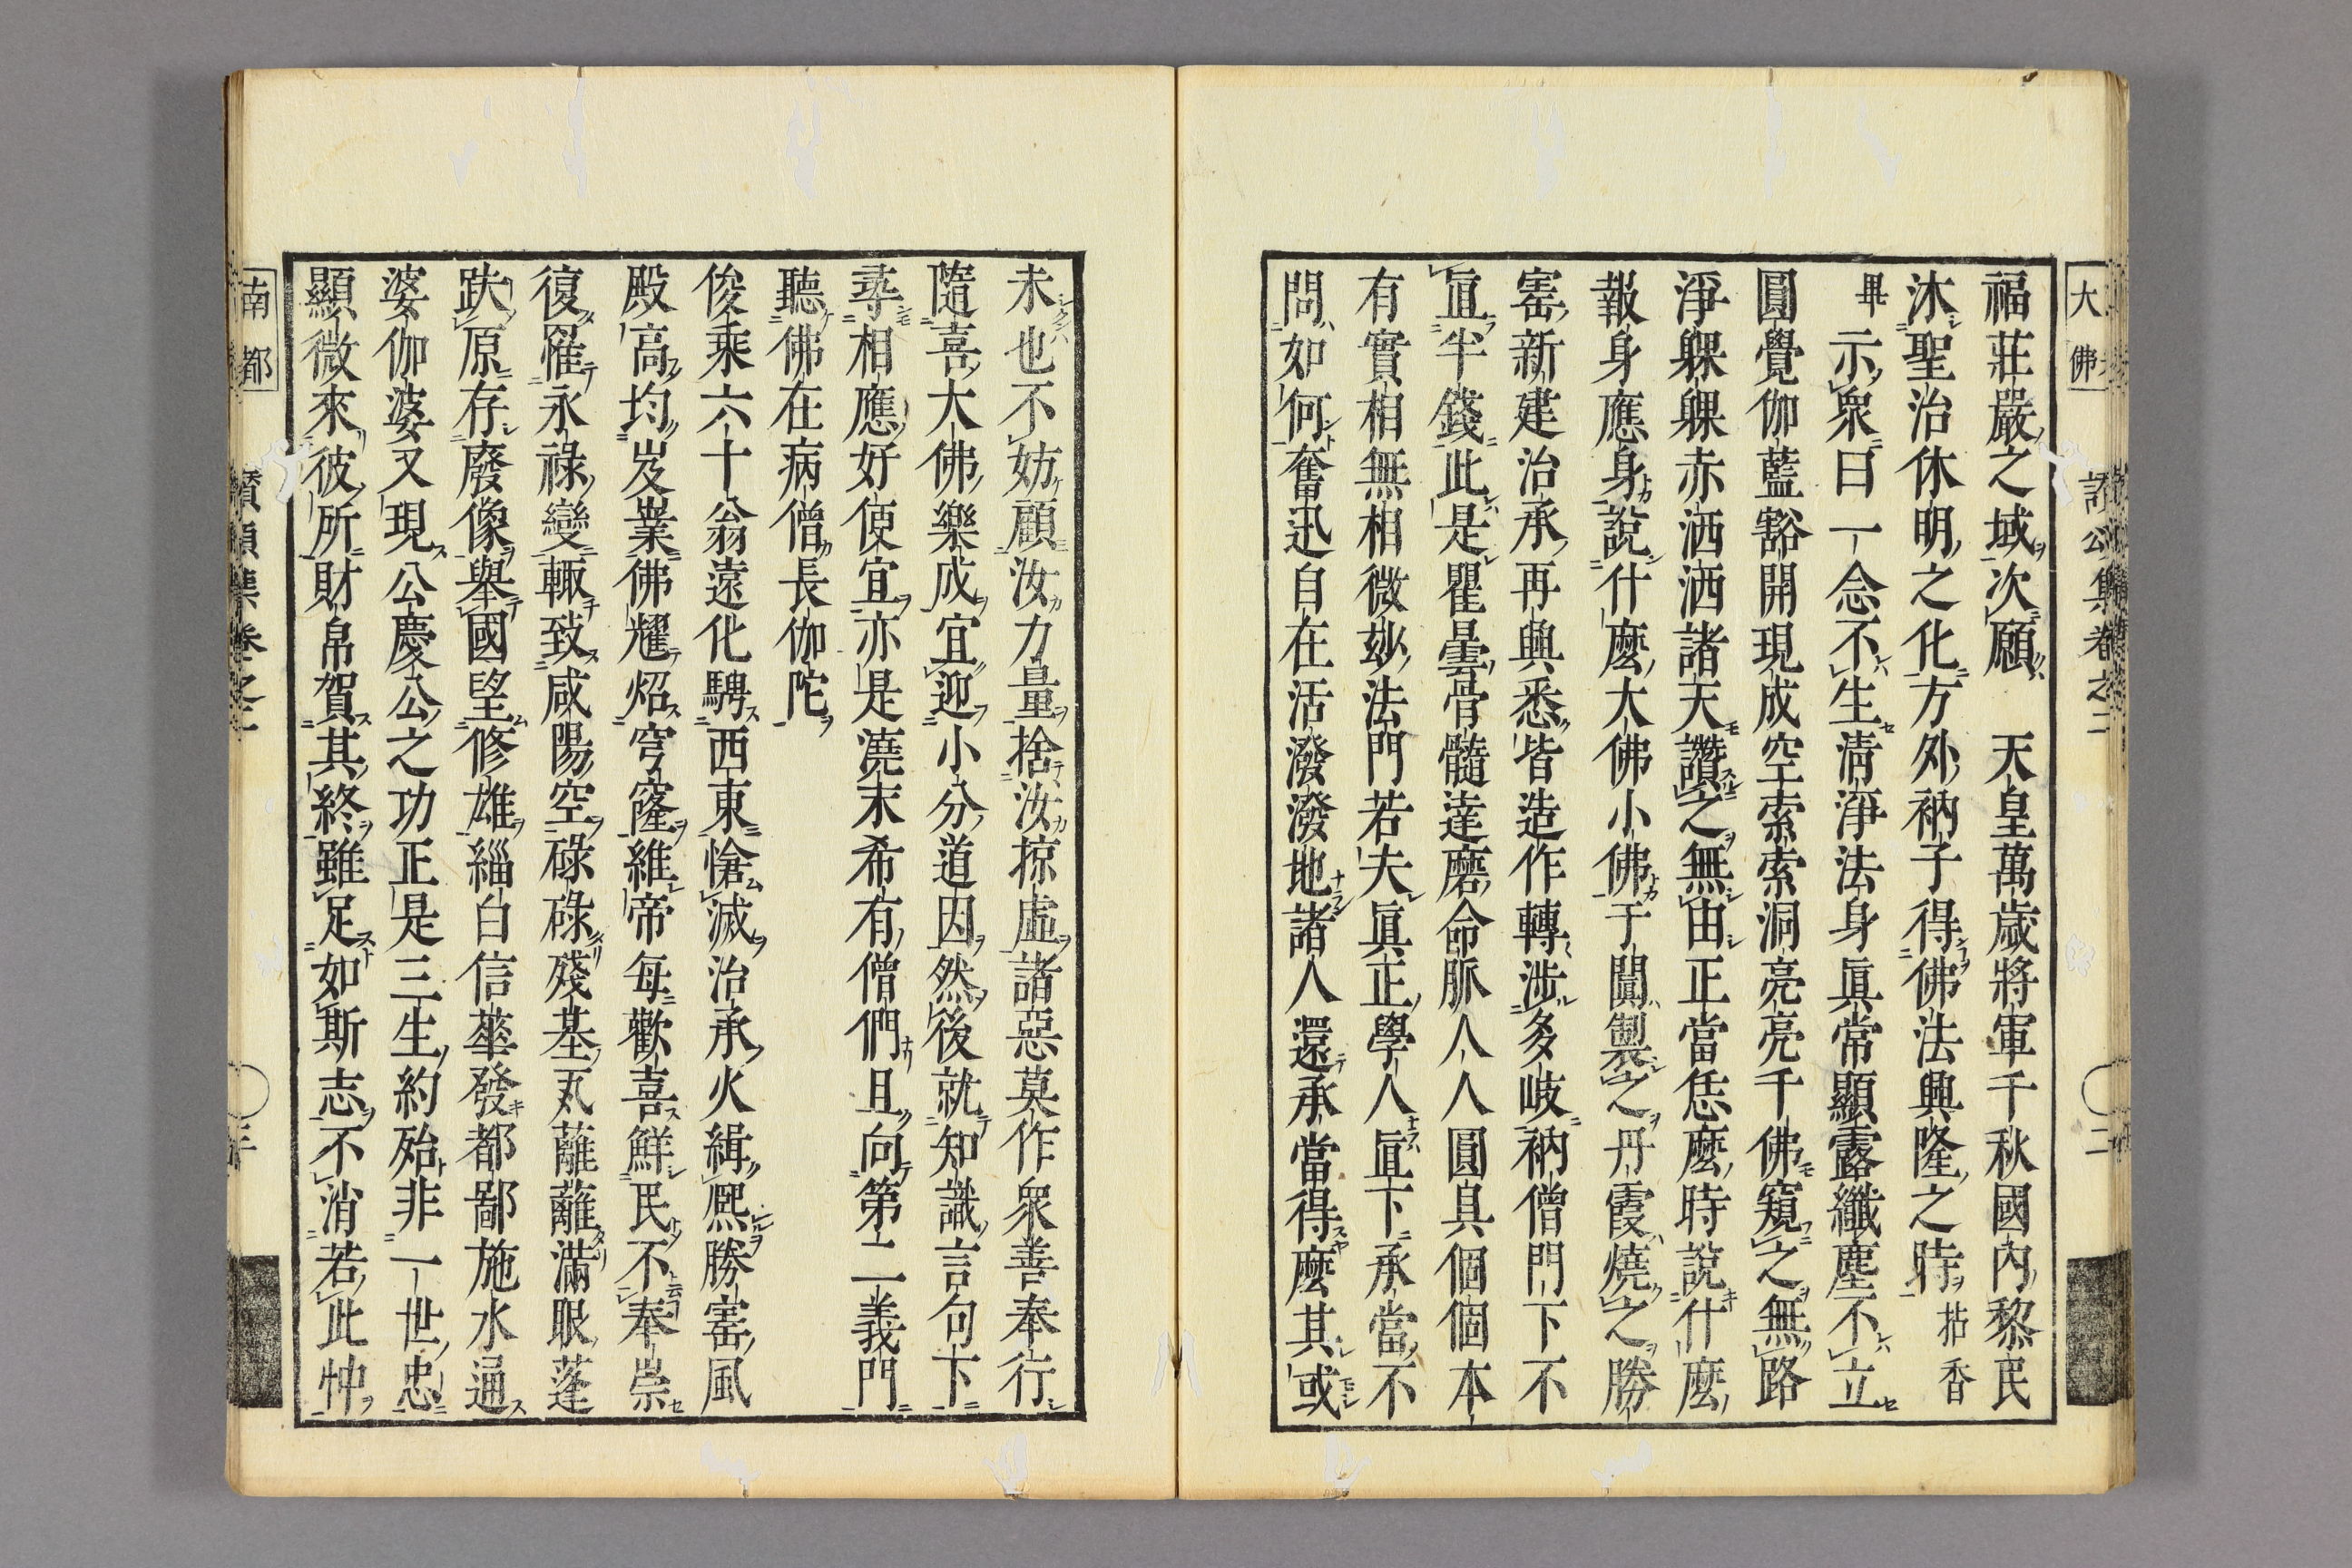 大佛 讃頌集卷之二 二
福莊嚴之域次願　天皇萬歲將軍千秋國內黎民
沐聖治休明之化方外衲子得佛法興隆之時拈香
畢示衆曰一念不生淸淨法身眞常顯露纖塵不立
圓覺伽藍豁開現成空索索洞亮亮千佛窺之無路
淨躶躶赤洒洒諸天讚之無由正當恁麼時說什麼
報身應身說什麼大佛小佛于闐製之丹霞燒之勝
窰新建治承再興悉皆造作轉涉多岐衲僧門下不
直半錢此是瞿曇骨髓達磨命脈人人圓具個個本
有實相無相微玅法門若夫眞正學人直下承當不
問如何奮迅自在活潑潑地諸人還承當得麼其或
未也不妨顧汝力量捨汝掠虛諸惡莫作衆善奉行
隨喜大佛樂成宜迎小分道因然後就知識言句下
尋相應好使宜亦是澆末希有僧們且向第二義門
聽佛在病僧長伽陀
俊乘六十翁遠化騁西東愴滅治承火緝熈勝窰風
殿高均岌嶪佛耀炤穹窿維帝每歡喜鮮民不奉崇
復罹永祿變輙致咸陽空碌碌殘基丸蘺蘺滿眼蓬
趺原存廢像舉國望修雄緇白信華發都鄙施水通
婆伽婆又現公慶公之功正是三生約殆非一世忠
顯微來彼所財帛賀其終雖足如斯志不消若此忡
南都 讃頌集卷之二 三